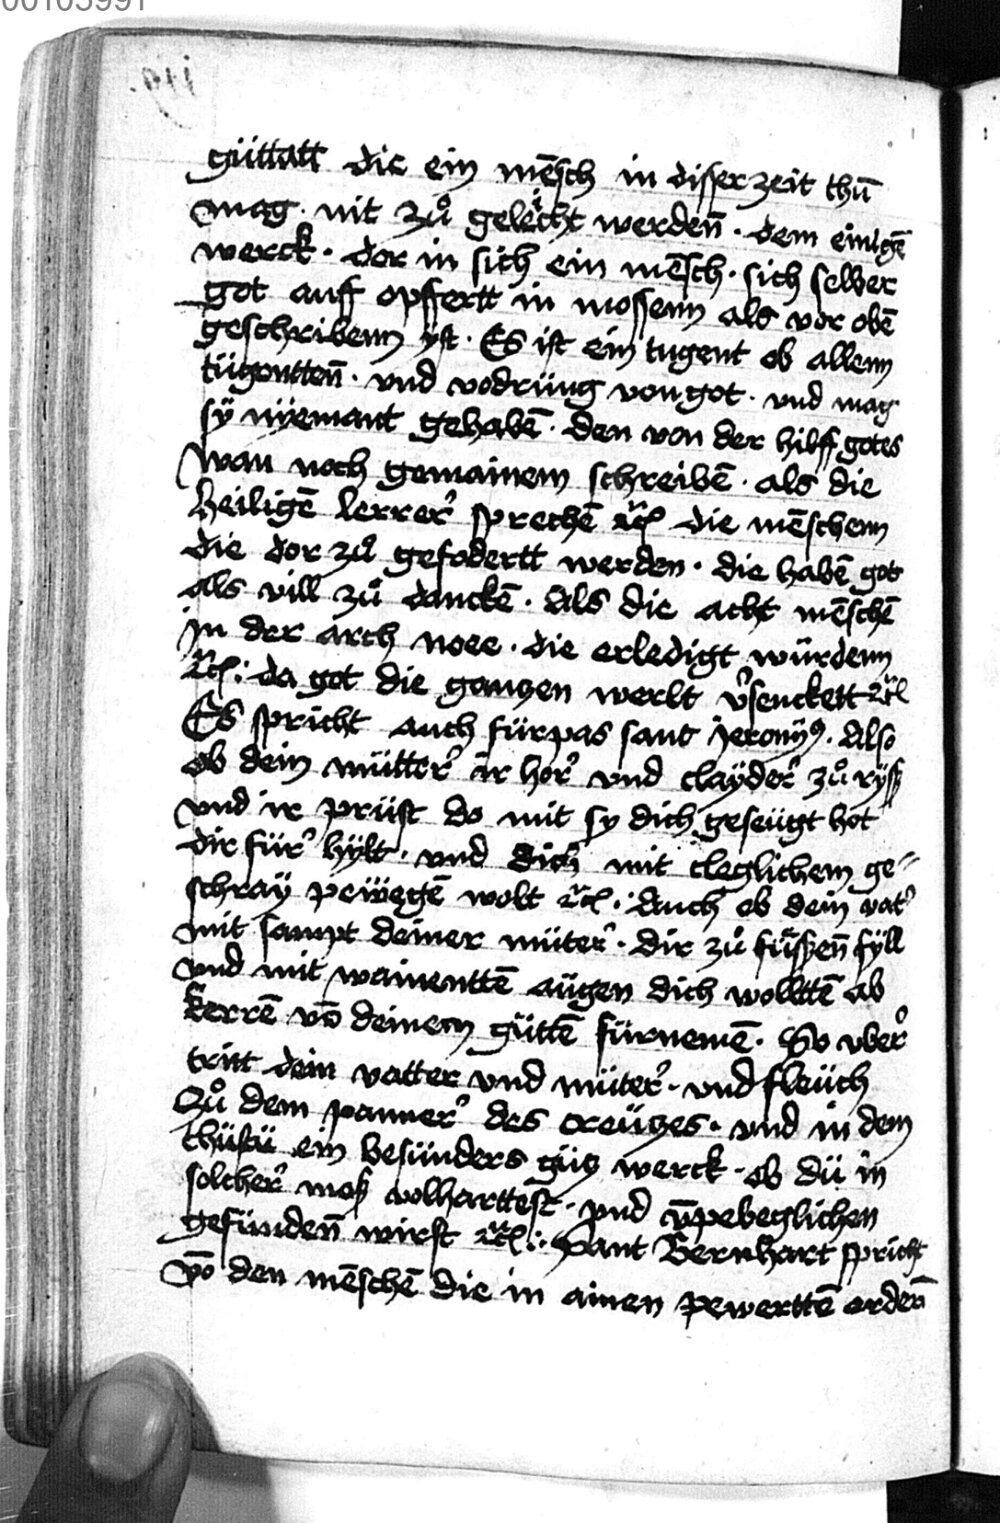 00103991
119.
güttatt die ein mēsch in disser zeit thū
mag · nit zů gelecht werdeñ · dem einigē
werck · der in sich ein mēsch · sich selber
got auff opffertt in mossenn als vor obē
geschribenn yst · Es ist ein tugent ob allenn
tügentteñ · vnd vodrüng von got · vnd mag
sÿ nÿemant gehabē · den von der hilff gotes
wan noch gemainem schreibē · als die
heiligē lerrer sprechē ꝛc̃ die mēschenn
die dor zů gefodertt werden · die habē got
alls vill zů danckē · Als die acht mēschē
jn der arch noee · die erledigt würdenn
ꝛc̃ : da got die ganczen werlt v̓senckett ꝛc̃
Es spricht auch fürpas sant jeronÿꝰ · Also
ob dein mütter ir hor vnd claÿder zů rÿsß
vnd ir prüst do mit sy dich geseügt hot
dir für hÿlt · vnd dich mit cleglichem ge⸗
schraÿ pewegē wolt ꝛc̃ · Auch ob dein vat̓
mit sampt deiner müter · dir zů füsszeñ fÿll
vnd mit wainenttē augen dich wollttē ab
kerrē vō deinem güttē fürnemē · So vber
tritt dein vatter vnd müter · vnd fleüch
zů dem panner des creüczes · vnd in dem
thüstü ein besünders gücz werck · ob dü in
solcher mosß volharttest · vnd v̄pebeglichen
gefündeñ wirst ꝛc̃ : Sant Bernhart spricht
vō den mēschē die in ainen pewerttē ordeñ